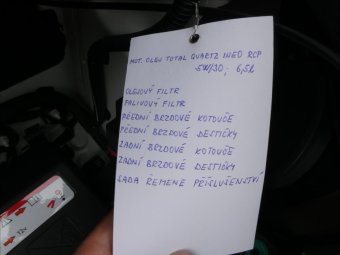 MOT. OLEJ TOTAL QUARTZ INEO RCP
5W/30; 6,5L
OLEJOVÝ FILTR
PALIVOVÝ FILTR
PŘEDNÍ BRZDOVÉ KOTOUČE
PŘEDNÍ BRZDOVÉ DESTIČKY
ZADNÍ BRZDOVÉ KOTOUČE
ZADNÍ BRZDOVÉ DESTIČKY
SADA ŘEMENE PŘÍSLUŠENSTVÍ
12V